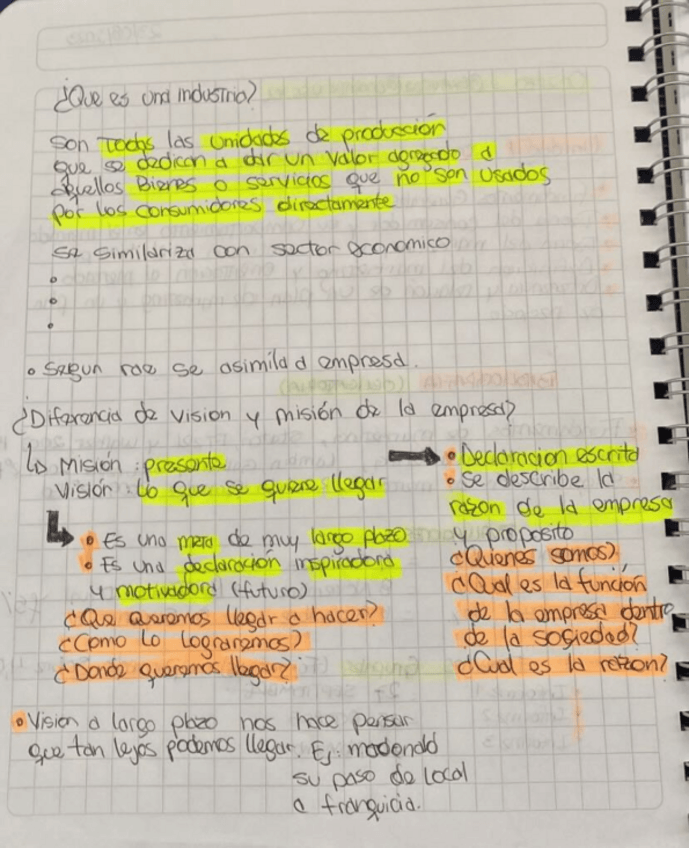 ¿Que es una industria?
Son todas las unidades de producción
que se dedican a dar un valor agregado a
aquellos Bienes o servicios que no son usados
por los consumidores directamente
se similariza con sector economico
• Segun rae se asimila a empresa.
¿Diferencia de vision y misión de la empresa?
Misión: presente
Visión: Lo que se quiere llegar
• Declaracion escrita
• Se describe la
razon de la empresa
y proposito
¿Quienes somos?
¿Cual es la función
de la empresa dentro
de la sociedad?
¿Cual es la razon?
• Es una meta de muy largo plazo
• Es una declaración inspiradora
y motivadora (futuro)
¿Que queremos llegar a hacer?
¿Como lo lograremos?
¿Donde queremos llegar?
• Vision a largo plazo nos hace pensar
que tan lejos podemos llegar. Ej:
su paso de local
a franquicia.